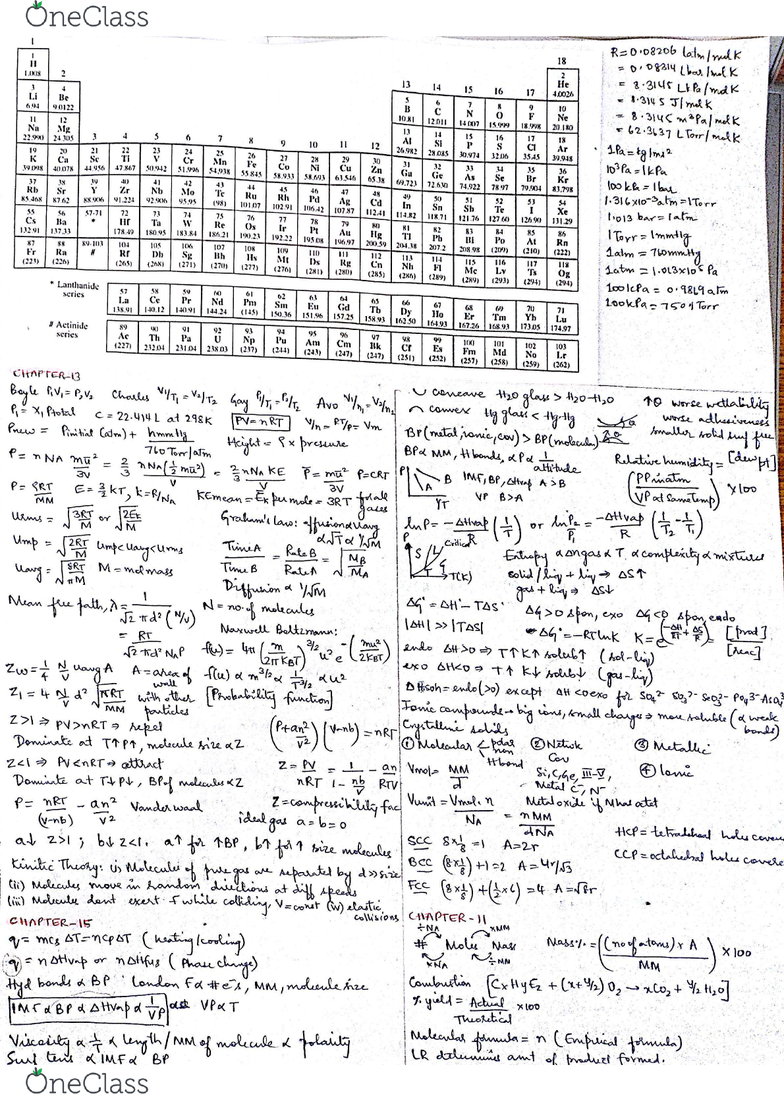 OneClass
1
18
1
H
1.008
2
2
He
4.0026
13 14 15 16 17
3
Li
6.94
4
Be
9.0122
5
B
10.81
6
C
12.011
7
N
14.007
8
O
15.999
9
F
18.998
10
Ne
20.180
11
Na
22.990
12
Mg
24.305
3 4 5 6 7 8 9 10 11 12
13
Al
26.982
14
Si
28.085
15
P
30.974
16
S
32.06
17
Cl
35.45
18
Ar
39.948
19
K
39.098
20
Ca
40.078
21
Sc
44.956
22
Ti
47.867
23
V
50.942
24
Cr
51.996
25
Mn
54.938
26
Fe
55.845
27
Co
58.933
28
Ni
58.693
29
Cu
63.546
30
Zn
65.38
31
Ga
69.723
32
Ge
72.630
33
As
74.922
34
Se
78.97
35
Br
79.904
36
Kr
83.798
37
Rb
85.468
38
Sr
87.62
39
Y
88.906
40
Zr
91.224
41
Nb
92.906
42
Mo
95.95
43
Tc
(98)
44
Ru
101.07
45
Rh
102.91
46
Pd
106.42
47
Ag
107.87
48
Cd
112.41
49
In
114.82
50
Sn
118.71
51
Sb
121.76
52
Te
127.60
53
I
126.90
54
Xe
131.29
55
Cs
132.91
56
Ba
137.33
57-71
*
72
Hf
178.49
73
Ta
180.95
74
W
183.84
75
Re
186.21
76
Os
190.23
77
Ir
192.22
78
Pt
195.08
79
Au
196.97
80
Hg
200.59
81
Tl
204.38
82
Pb
207.2
83
Bi
208.98
84
Po
(209)
85
At
(210)
86
Rn
(222)
87
Fr
(223)
88
Ra
(226)
89-103
#
104
Rf
(265)
105
Db
(268)
106
Sg
(271)
107
Bh
(270)
108
Hs
(277)
109
Mt
(276)
110
Ds
(281)
111
Rg
(280)
112
Cn
(285)
113
Nh
(286)
114
Fl
(289)
115
Mc
(289)
116
Lv
(293)
117
Ts
(294)
118
Og
(294)
* Lanthanide
series
57
La
138.91
58
Ce
140.12
59
Pr
140.91
60
Nd
144.24
61
Pm
(145)
62
Sm
150.36
63
Eu
151.96
64
Gd
157.25
65
Tb
158.93
66
Dy
162.50
67
Ho
164.93
68
Er
167.26
69
Tm
168.93
70
Yb
173.05
71
Lu
174.97
# Actinide
series
89
Ac
(227)
90
Th
232.04
91
Pa
231.04
92
U
238.03
93
Np
(237)
94
Pu
(244)
95
Am
(243)
96
Cm
(247)
97
Bk
(247)
98
Cf
(251)
99
Es
(252)
100
Fm
(257)
101
Md
(258)
102
No
(259)
103
Lr
(262)
R = 0.08206 Latm/molK
= 0.08314 Lbar/molK
= 8.3145 LkPa/molK
= 8.3145 J/molK
= 8.3145 m³Pa/molK
= 62.3637 LTorr/molK
1Pa = kg/ms²
10³Pa = 1kPa
100kPa = 1bar
1.316×10⁻³atm = 1Torr
1.013 bar = 1atm
1Torr = 1mmHg
1atm = 760mmHg
1atm = 1.013×10⁵Pa
100kPa = 0.9869atm
100kPa = 750.1Torr
CHAPTER-13
Boyle P₁V₁ = P₂V₂ Charles V₁/T₁ = V₂/T₂ Gay P₁/T₁ = P₂/T₂ Avo V₁/n₁ = V₂/n₂
P₁ = X₁Ptotal C = 22.414L at 298K PV = nRT V/n = RT/P = Vm
Pnew = Pinitial (atm) + hmmHg / 760 Torr/atm Height = ρ × pressure
P = nNA mū²/3V = 2/3 nNA(½mū²)/V = 2/3 nNA KE/V P = mū²/3V P = CRT
P = ρRT/MM E = 3/2 kT, k = R/NA KEmean = Ek per mole = 3RT for all gases
Urms = √3RT/M or √2Ek/M Graham's law: effusion α Uavg α √T α 1/√M
Ump = √2RT/M Ump<Uavg<Urms TimeA/TimeB = RateB/RateA = √MB/MA
Uavg = √8RT/πM M = molmass Diffusion α 1/√M
Mean free path, λ = 1/√2πd²(N/V) N = no. of molecules
= RT/√2πd²NAP Maxwell Boltzmann:
f(u) = 4π(m/2πKBT)^3/2 u² e^-(mu²/2KBT)
Zw = 1/4 N/V Uavg A A = area of wall f(u) α m^3/2 α 1/T^3/2 α u²
Z1 = 4 N/V d² √πRT/MM with other particles [Probability function]
Z>1 ⇒ PV>nRT ⇒ repel (P+an²/V²)(V-nb) = nRT
Dominate at T↑P↑, molecule size α Z
Z<1 ⇒ PV<nRT ⇒ attract Z = PV/nRT = 1/(1-nb/V) - an/RTV
Dominate at T↓P↓, BP of molecules α Z
P = nRT/(V-nb) - an²/V² Vanderwaal Z = compressibility fac
ideal gas a = b = 0
a↓ Z>1; b↓ Z<1. a↑ for ↑BP, b↑ for ↑ size molecules
Kinetic Theory: (i) Molecules of pure gas are separated by d>>size
(ii) Molecules move in random directions at diff speeds
(iii) Molecule dont exert F while colliding, V=const (iv) elastic collisions
CHAPTER-15
q = mcsΔT = ncpΔT (heating/cooling)
q = nΔHvap or nΔHfus (Phase change)
Hyd bonds α BP London F α #e⁻s, MM, molecule size
IMF α BP α ΔHvap α 1/VP VP α T
Viscosity α 1/T α length/MM of molecule α polarity
Surf tens α IMF α BP
∪ concave H₂O glass > H₂O-H₂O
∩ convex Hg glass < Hg-Hg
↑θ worse wettability
worse adhesiveness
smaller solid surf free
BP(metal,ionic,cov) > BP(molecular)
BP α MM, H bonds, α P α 1/altitude
Relative humidity = [dew pt]
(PP in atm / VP at same temp) × 100
P A B 1/T IMF, BP, ΔHvap A>B
VP B>A
lnP = -ΔHvap/R (1/T) or ln P₂/P₁ = -ΔHvap/R (1/T₂ - 1/T₁)
P S L G Critical T T(K)
Entropy α Δngas α T, α complexity α mixtures
solid/liq + liq → ΔS↑
gas + liq → ΔS↓
ΔG° = ΔH° - TΔS° ΔG>0 spon, exo ΔG<0 spon, endo
|ΔH| >> |TΔS| ΔG° = -RTlnK K = e^(-ΔH/RT + ΔS/R) = [prod]/[reac]
endo ΔH>0 ⇒ T↑K↑ solub↑ (sol-liq)
exo ΔH<0 ⇒ T↑ K↓ solub↓ (gas-liq)
ΔHsoln = endo(>0) except ΔH<0 exo for SO₄²⁻ SO₃²⁻ SeO₃²⁻ PO₄³⁻
Ionic compounds → big ions, small charges → more soluble (α weak bonds)
Crystalline solids
① Molecular < polar non Hbond ② Network Cov ③ Metallic
Si, C, Ge, III-V, Metal C⁻, N⁻ ④ Ionic
Vmol = MM/d
Vunit = Vmol·n/NA = nMM/dNA
SCC 8×⅛ = 1 A = 2r HCP = tetrahedral holes
BCC (8×⅛)+1 = 2 A = 4r/√3 CCP = octahedral holes
FCC (8×⅛)+(½×6) = 4 A = √8r
CHAPTER-11
÷NA ×MM
# Moles Mass Mass% = ((no of atoms) × A / MM) × 100
×NA ÷MM
Combustion [CxHyEz + (x+y/2)O₂ → xCO₂ + y/2 H₂O]
% yield = Actual/Theoretical × 100
Molecular formula = n (Empirical formula)
LR determines amt of product formed.
OneClass